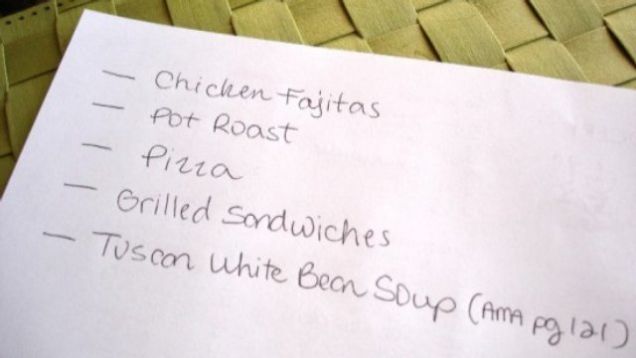 — Chicken Fajitas
— Pot Roast
— Pizza
— Grilled Sandwiches
— Tuscan White Bean Soup (AMA pg 121)